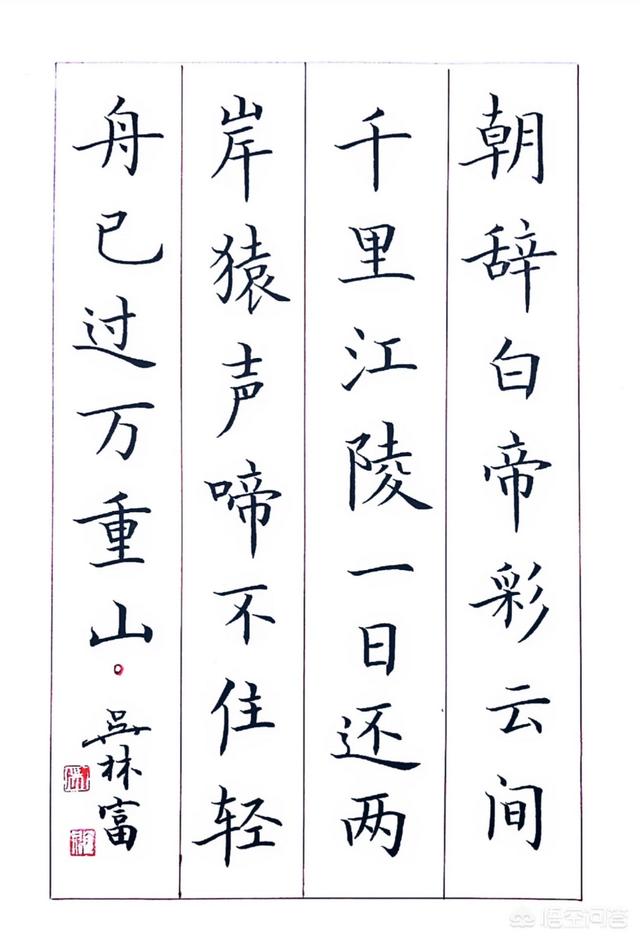 朝辞白帝彩云间
千里江陵一日还两
岸猿声啼不住轻
舟已过万重山。
吴林富
悟空问答